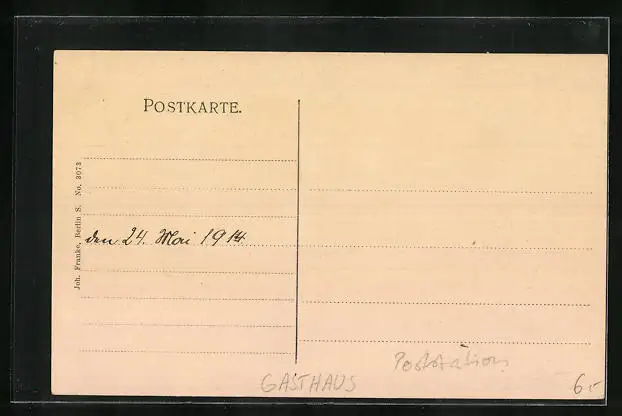 POSTKARTE.
Joh. Franke, Berlin S. No. 3073
den 24. Mai 1914
GASTHAUS
Poststation
6.-